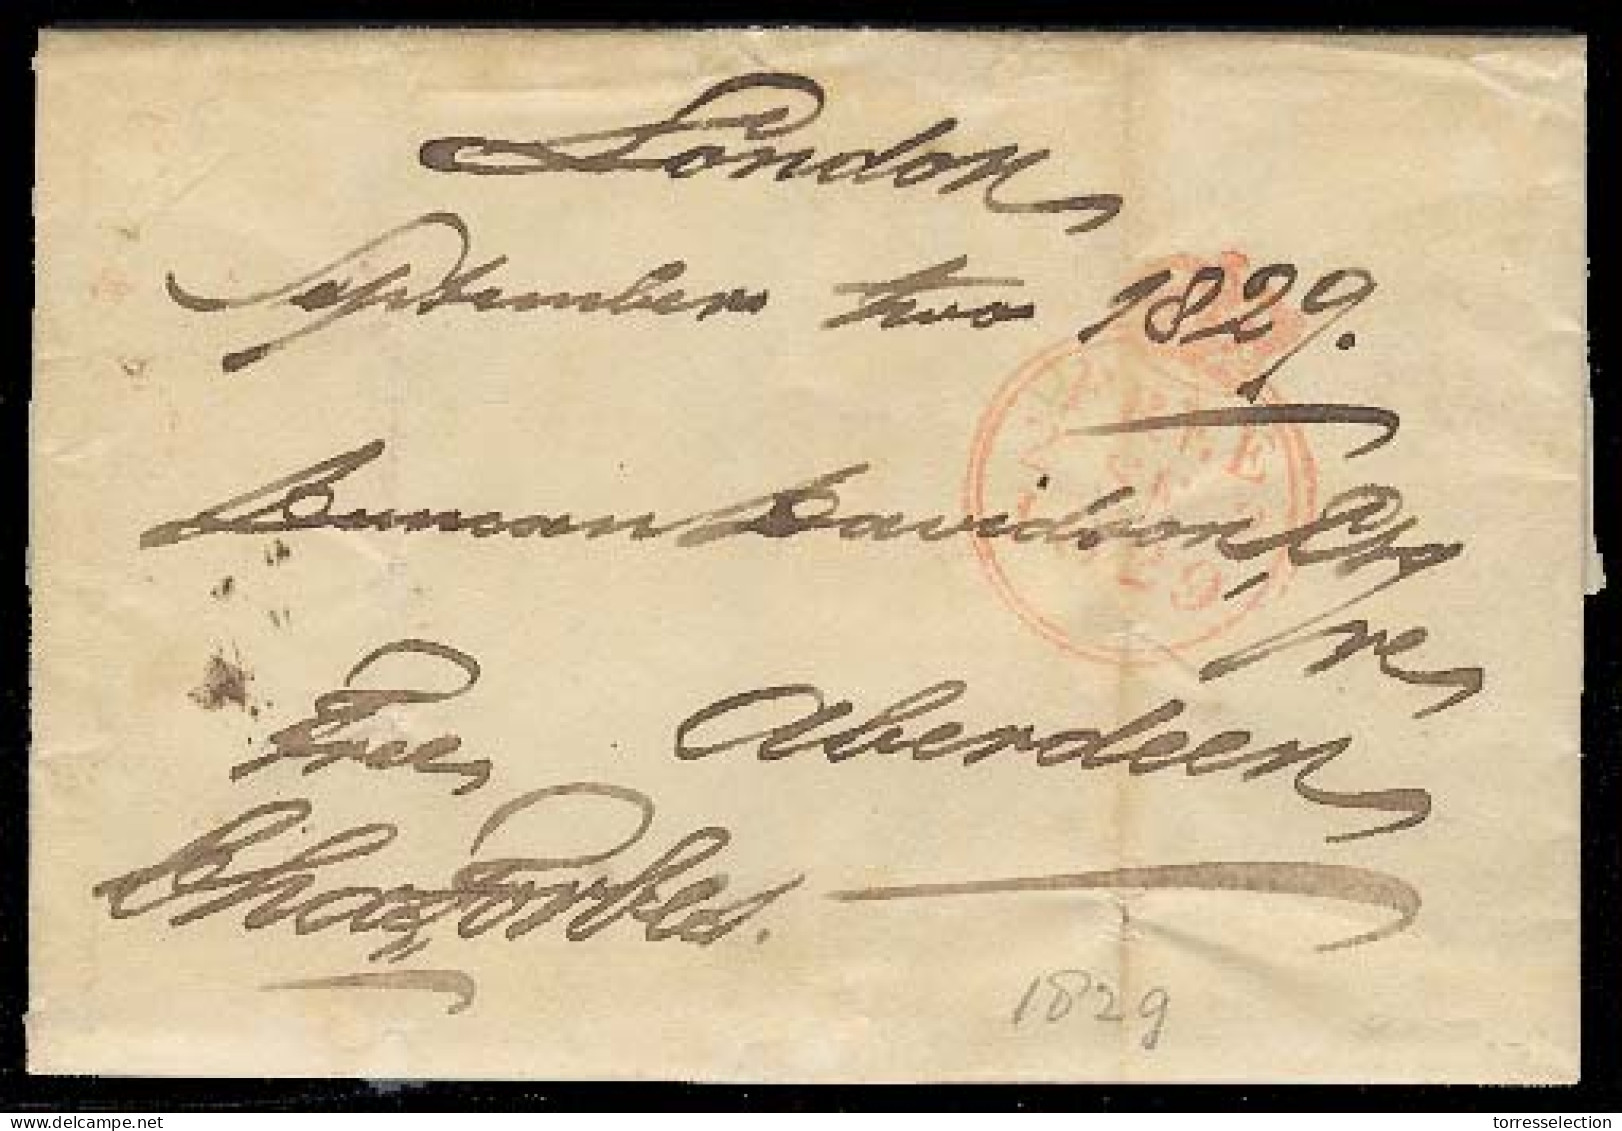 London,
September two 1829.
Duncan Davidson, Esq
Free, Aberdeen,
Chas Forbes.
FREE
29
1829
torresselection